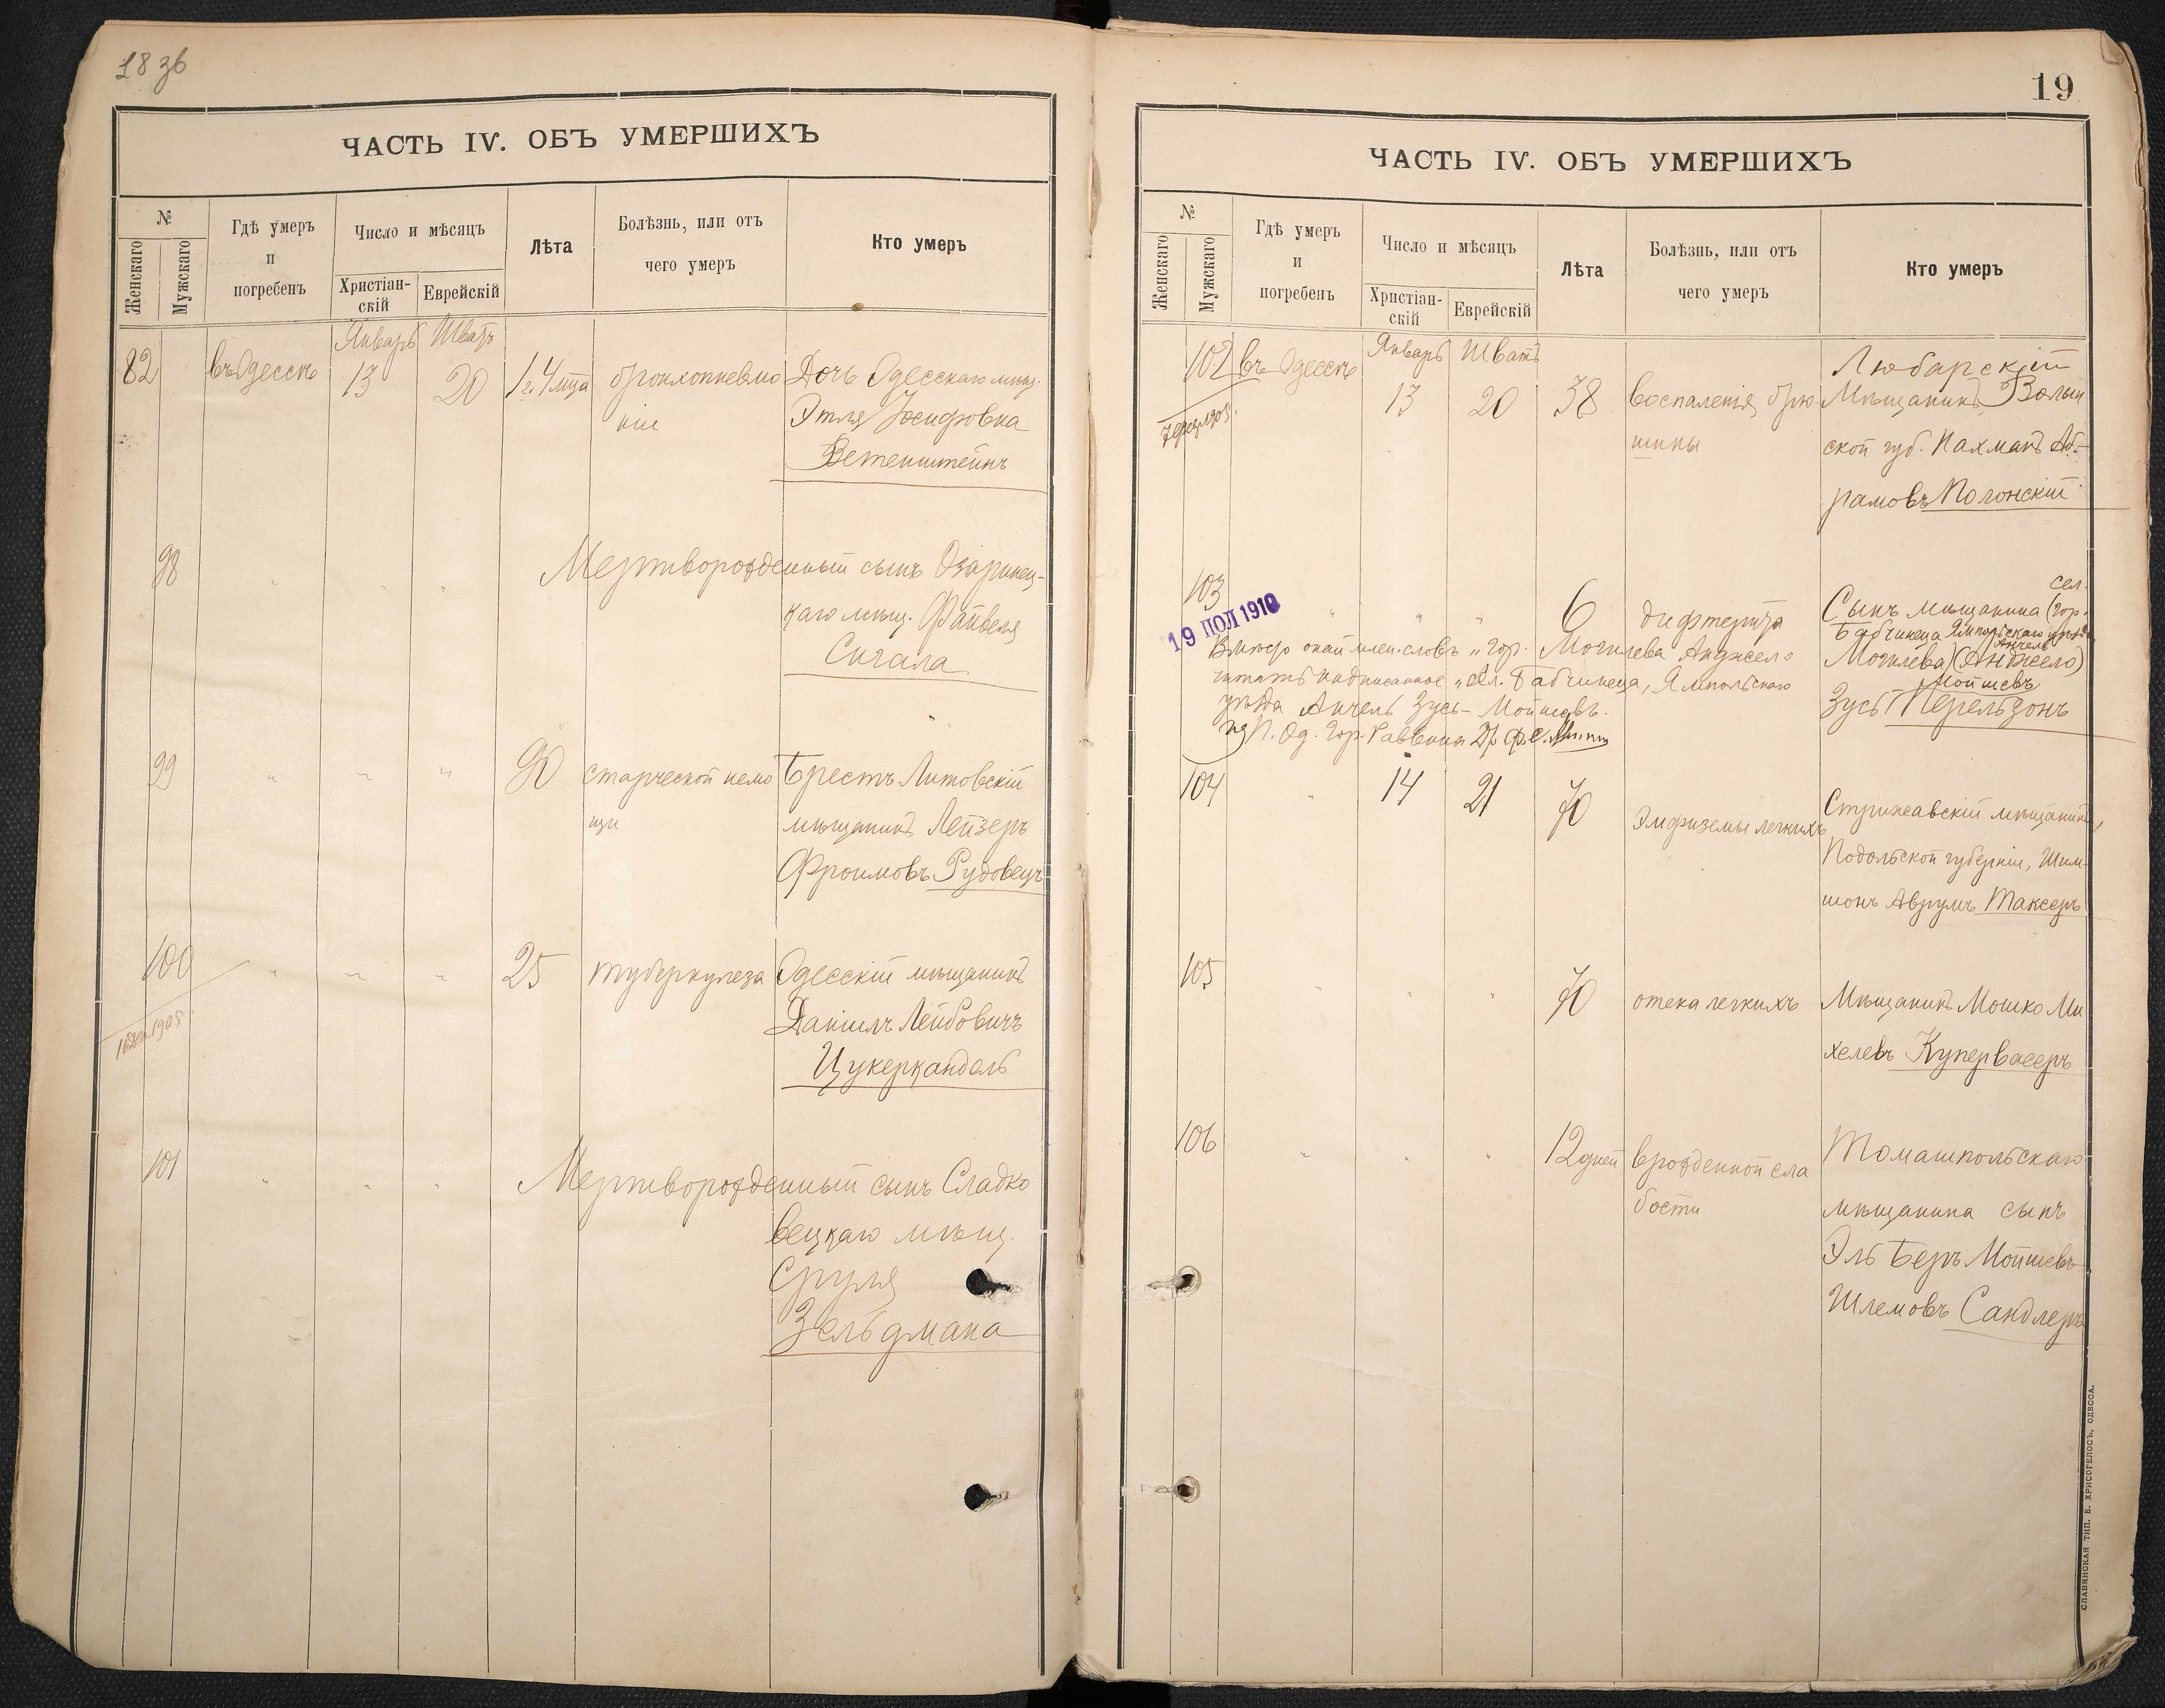 18 зб
ЧАСТЬ IV. ОБЪ УМЕРШИХЪ
№
Женскаго
Мужскаго
Гдѣ умеръ
и
погребенъ
Число и мѣсяцъ
Христіан-
скій
Еврейскій
Лѣта
Болѣзнь, или отъ
чего умеръ
Кто умеръ
Январь Шватъ
82 въ Одессѣ 13 20 1 г. 4 мца бронхопневмо Дочь Одесскаго мѣщ.
ніи Этля Іосифовна
Ветенштейнъ
98 " " " Мертворожденный сынъ Озаринец-
каго мѣщ. Файвеля
Сигала
99 " " " 90 старческой немо Брестъ Литовскій
щи мѣщанинъ Лейзеръ
Фроимовъ Рудовецъ
100 " " " 25 туберкулеза Одесскій мѣщанинъ
Даніилъ Лейбовичъ
16 1905 Цукеркандель
101 " " " Мертворожденный сынъ Сладко
вецкаго мѣщ.
Сруля
Зельдмана
19
ЧАСТЬ IV. ОБЪ УМЕРШИХЪ
№
Женскаго
Мужскаго
Гдѣ умеръ
и
погребенъ
Число и мѣсяцъ
Христіан-
скій
Еврейскій
Лѣта
Болѣзнь, или отъ
чего умеръ
Кто умеръ
Январь Шватъ
102 въ Одессѣ 13 20 38 воспаленія брю- Любарскій
Мѣщанинъ Волын
шины ской губ. Нахманъ Аб-
рамовъ Полонскій
103 " " " 6 дифтерита Сынъ мѣщанина (гор.
сел.
Бабчинеца Ямпольскаго уѣзда
Могилева) (Анджело)
Анчель
Мойшевъ
Зусь Перельзонъ
19 ІЮЛ 1910
Вмѣсто окаймлен. словъ "гор. Могилева Анджело
читать надписанное "сел. Бабчинеца, Ямпольскаго
уѣзда Анчель Зусь-Мойшевъ.
П. Од. Гор. Раввина Др.
104 " 14 21 70 Эмфиземы легкихъ Стрижавскій мѣщанинъ,
Подольской губерніи, Шим-
шонъ Аврумъ Таксеръ
105 " " " 70 отека легкихъ Мѣщанинъ Мошко Ми
хелевъ Купервасеръ
106 " " " 12 дней врожденной сла Томашпольскаго
бости мѣщанина сынъ
Эль Беръ Мойшевъ
Шлемовъ Сандлеръ
СЛАВЯНСКАЯ ТИП. Е. ХРИСОГЕЛОСЪ, ОДЕССА.